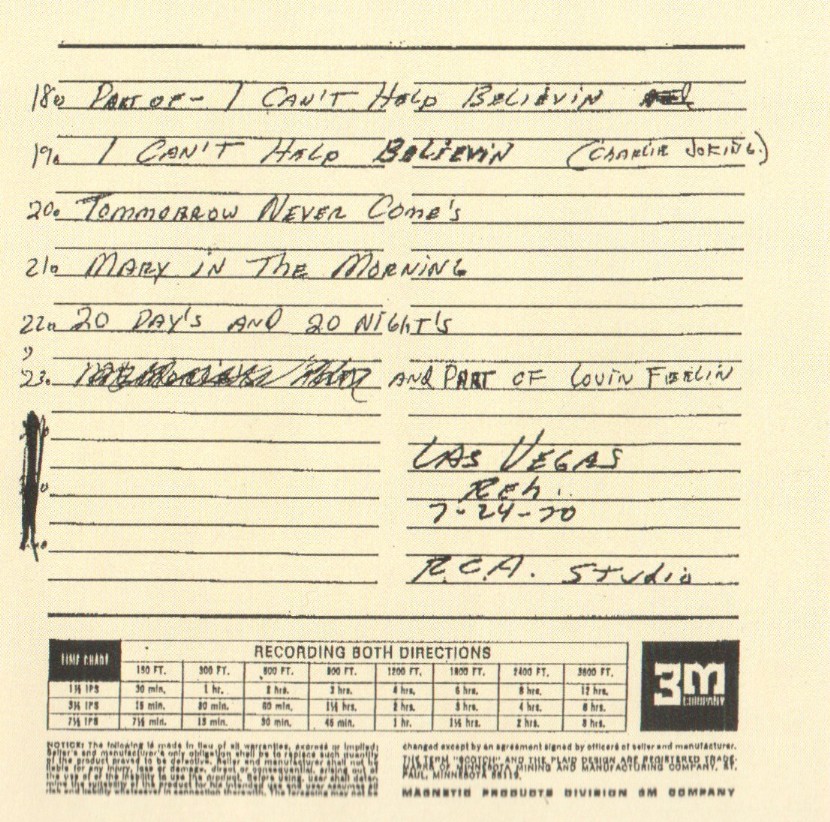 18. PART OF - I CAN'T HELP BELIEVIN
19. I CAN'T HELP BELIEVIN (CHARLIE JOKING.)
20. TOMMORROW NEVER COME'S
21. MARY IN THE MORNING
22. 20 DAY'S AND 20 NIGHT'S
23. AND PART OF LOVIN FEELIN
LAS VEGAS
REH.
7-24-70
R.C.A. STUDIO
TIME CHART RECORDING BOTH DIRECTIONS
150 FT. 300 FT. 600 FT. 900 FT. 1200 FT. 1800 FT. 2400 FT. 3600 FT.
1⅞ IPS 30 min. 1 hr. 2 hrs. 3 hrs. 4 hrs. 6 hrs. 8 hrs. 12 hrs.
3¾ IPS 15 min. 30 min. 60 min. 1½ hrs. 2 hrs. 3 hrs. 4 hrs. 6 hrs.
7½ IPS 7½ min. 15 min. 30 min. 45 min. 1 hr. 1½ hrs. 2 hrs. 3 hrs.
3M COMPANY
NOTICE: The following is made in lieu of all warranties, express or implied:
Seller's and manufacturer's only obligation shall be to replace such quantity
of the product proved to be defective. Seller and manufacturer shall not be
liable for any injury, loss or damage, direct or consequential, arising out of
the use of or the inability to use the product. Before using, user shall deter-
mine the suitability of the product for his intended use, and user assumes all
risk and liability whatsoever in connection therewith. The foregoing may not be
changed except by an agreement signed by officers of seller and manufacturer.
THE TERM "SCOTCH" AND THE PLAID DESIGN ARE REGISTERED TRADE-
MARKS OF MINNESOTA MINING AND MANUFACTURING COMPANY, ST.
PAUL, MINNESOTA 55119.
MAGNETIC PRODUCTS DIVISION 3M COMPANY